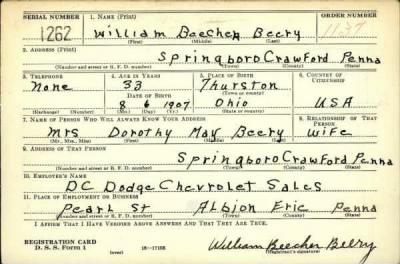 SERIAL NUMBER 1. NAME (Print) ORDER NUMBER
1262 William Beecher Beery 1137
(First) (Middle) (Last)
2. ADDRESS (Print)
Springboro Crawford Penna
(Number and street or R. F. D. number) (Town) (County) (State)
3. TELEPHONE 4. AGE IN YEARS 5. PLACE OF BIRTH 6. COUNTRY OF CITIZENSHIP
None 33 Thurston
DATE OF BIRTH (Town or county)
8 6 1907 Ohio USA
(Exchange) (Number) (Mo.) (Day) (Yr.) (State or country)
7. NAME OF PERSON WHO WILL ALWAYS KNOW YOUR ADDRESS 8. RELATIONSHIP OF THAT PERSON
Mrs Dorothy May Beery Wife
(Mr., Mrs., Miss) (First) (Middle) (Last)
9. ADDRESS OF THAT PERSON
Springboro Crawford Penna
(Number and street or R. F. D. number) (Town) (County) (State)
10. EMPLOYER'S NAME
DC Dodge Chevrolet Sales
11. PLACE OF EMPLOYMENT OR BUSINESS
Pearl St Albion Erie Penna
(Number and street or R. F. D. number) (Town) (County) (State)
I AFFIRM THAT I HAVE VERIFIED ABOVE ANSWERS AND THAT THEY ARE TRUE.
REGISTRATION CARD
D. S. S. Form 1 (over) 16—17105 William Beecher Beery
(Registrant's signature)